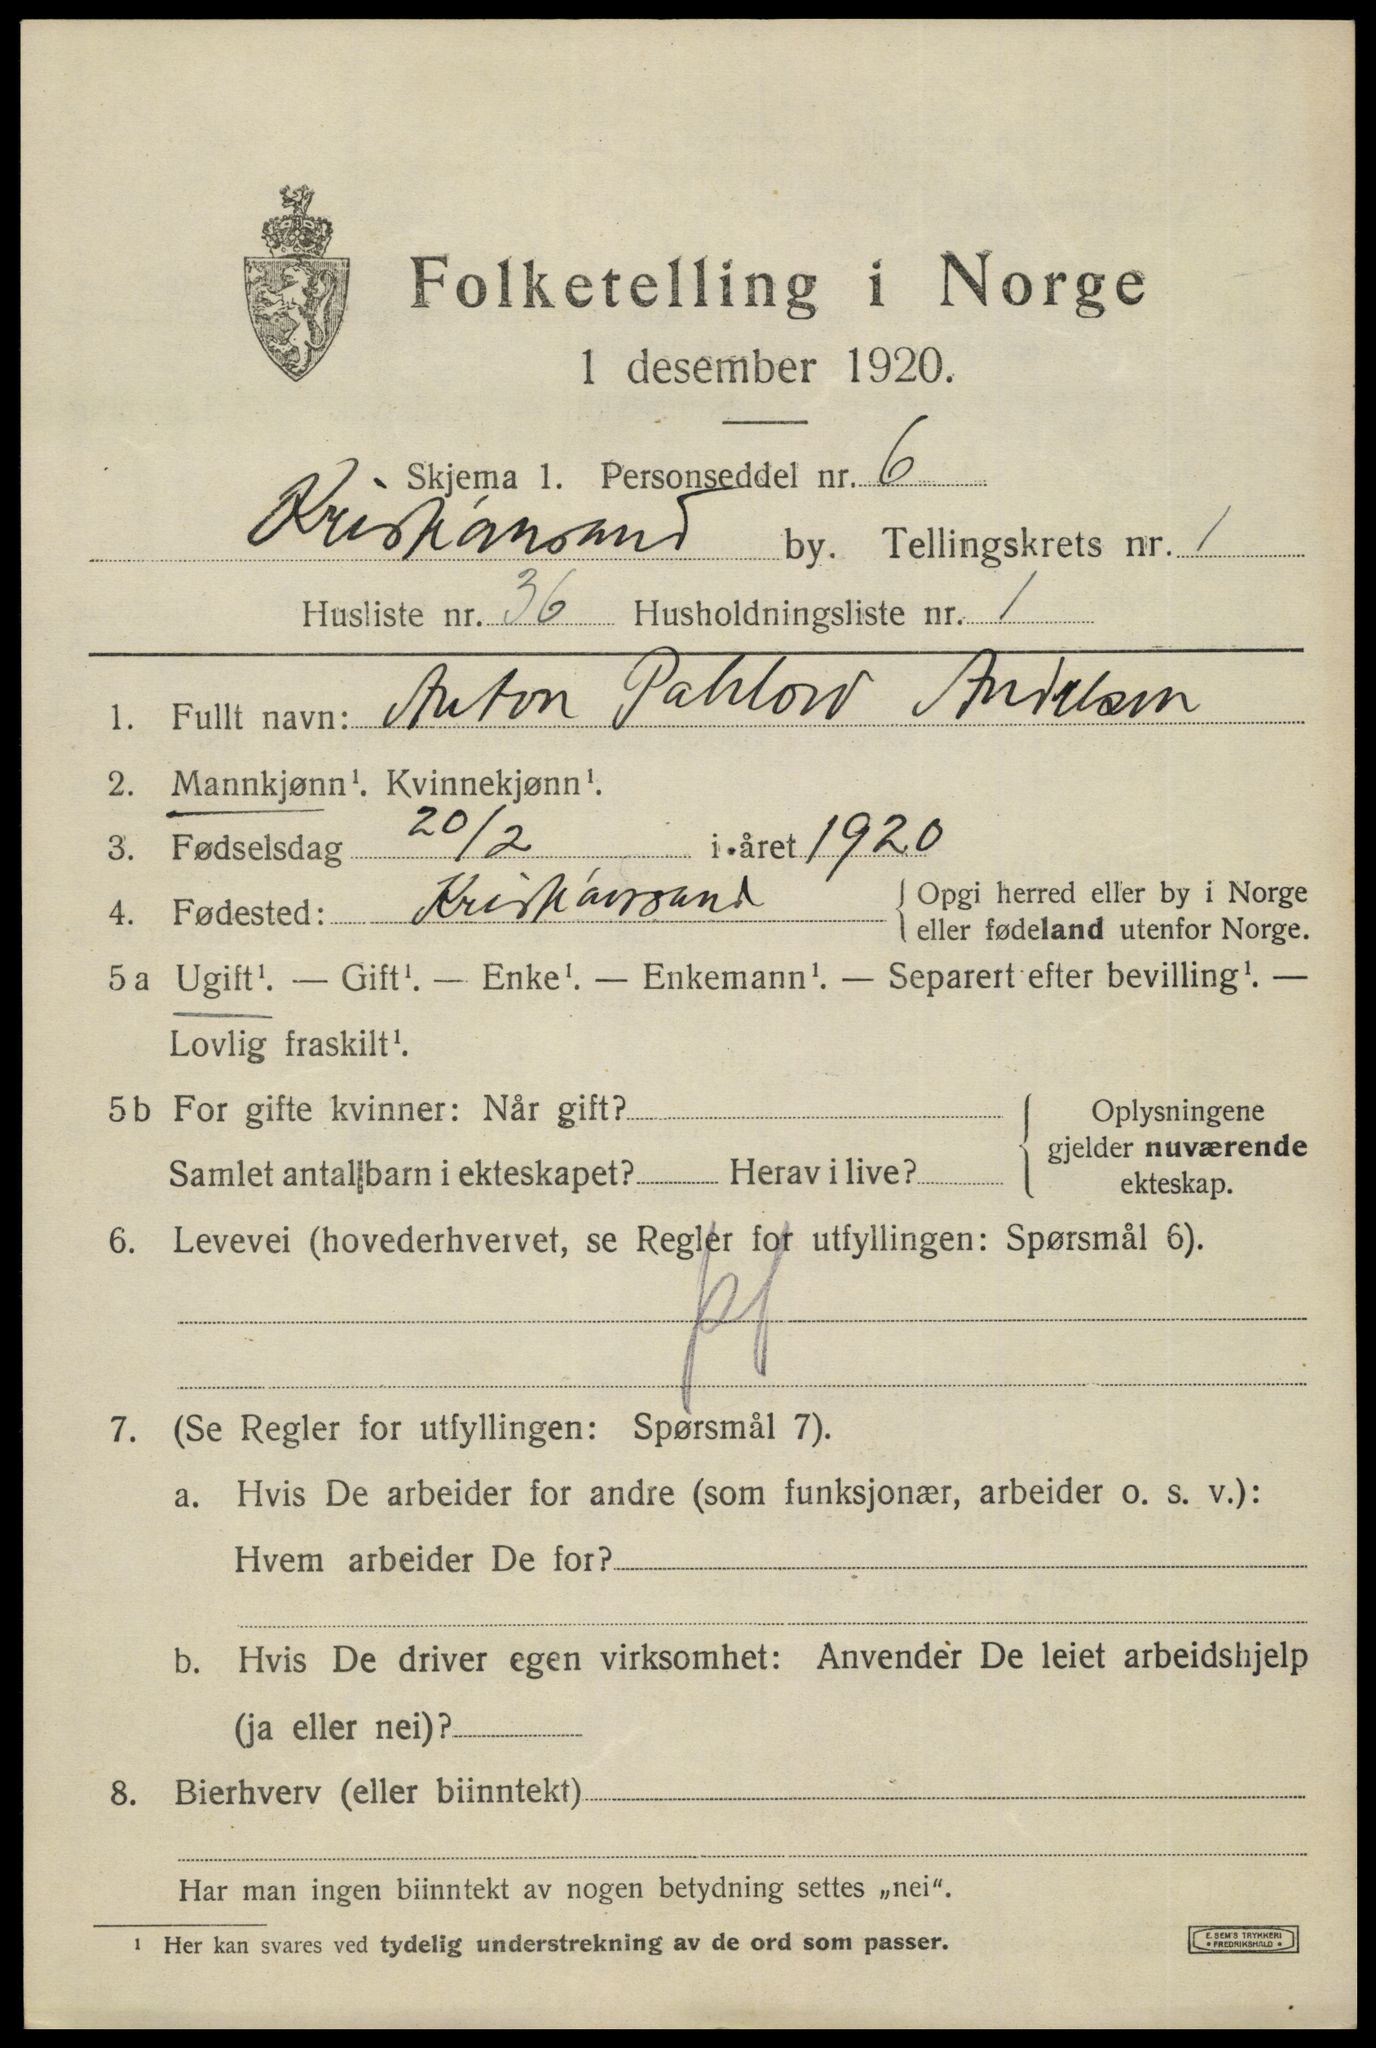 Folketelling i Norge
1 desember 1920.
Skjema 1. Personseddel nr. 6
Kristiansand by. Tellingskrets nr. 1
Husliste nr. 36 Husholdningsliste nr. 1
1. Fullt navn: Anton Andersen
2. Mannkjønn¹. Kvinnekjønn¹.
3. Fødselsdag 20/2 i året 1920
4. Fødested: Kristiansand { Opgi herred eller by i Norge
eller fødeland utenfor Norge.
5a Ugift¹. — Gift¹. — Enke¹. — Enkemann¹. — Separert efter bevilling¹. —
Lovlig fraskilt¹.
5b For gifte kvinner: Når gift?
Samlet antal barn i ekteskapet? Herav i live?
{ Oplysningene
gjelder nuværende
ekteskap.
6. Levevei (hovederhvervet, se Regler for utfyllingen: Spørsmål 6).
7. (Se Regler for utfyllingen: Spørsmål 7).
a. Hvis De arbeider for andre (som funksjonær, arbeider o. s. v.):
Hvem arbeider De for?
b. Hvis De driver egen virksomhet: Anvender De leiet arbeidshjelp
(ja eller nei)?
8. Bierhverv (eller biinntekt)
Har man ingen biinntekt av nogen betydning settes „nei“.
¹ Her kan svares ved tydelig understrekning av de ord som passer.
E. SEM'S TRYKKERI
• FREDRIKSHALD •